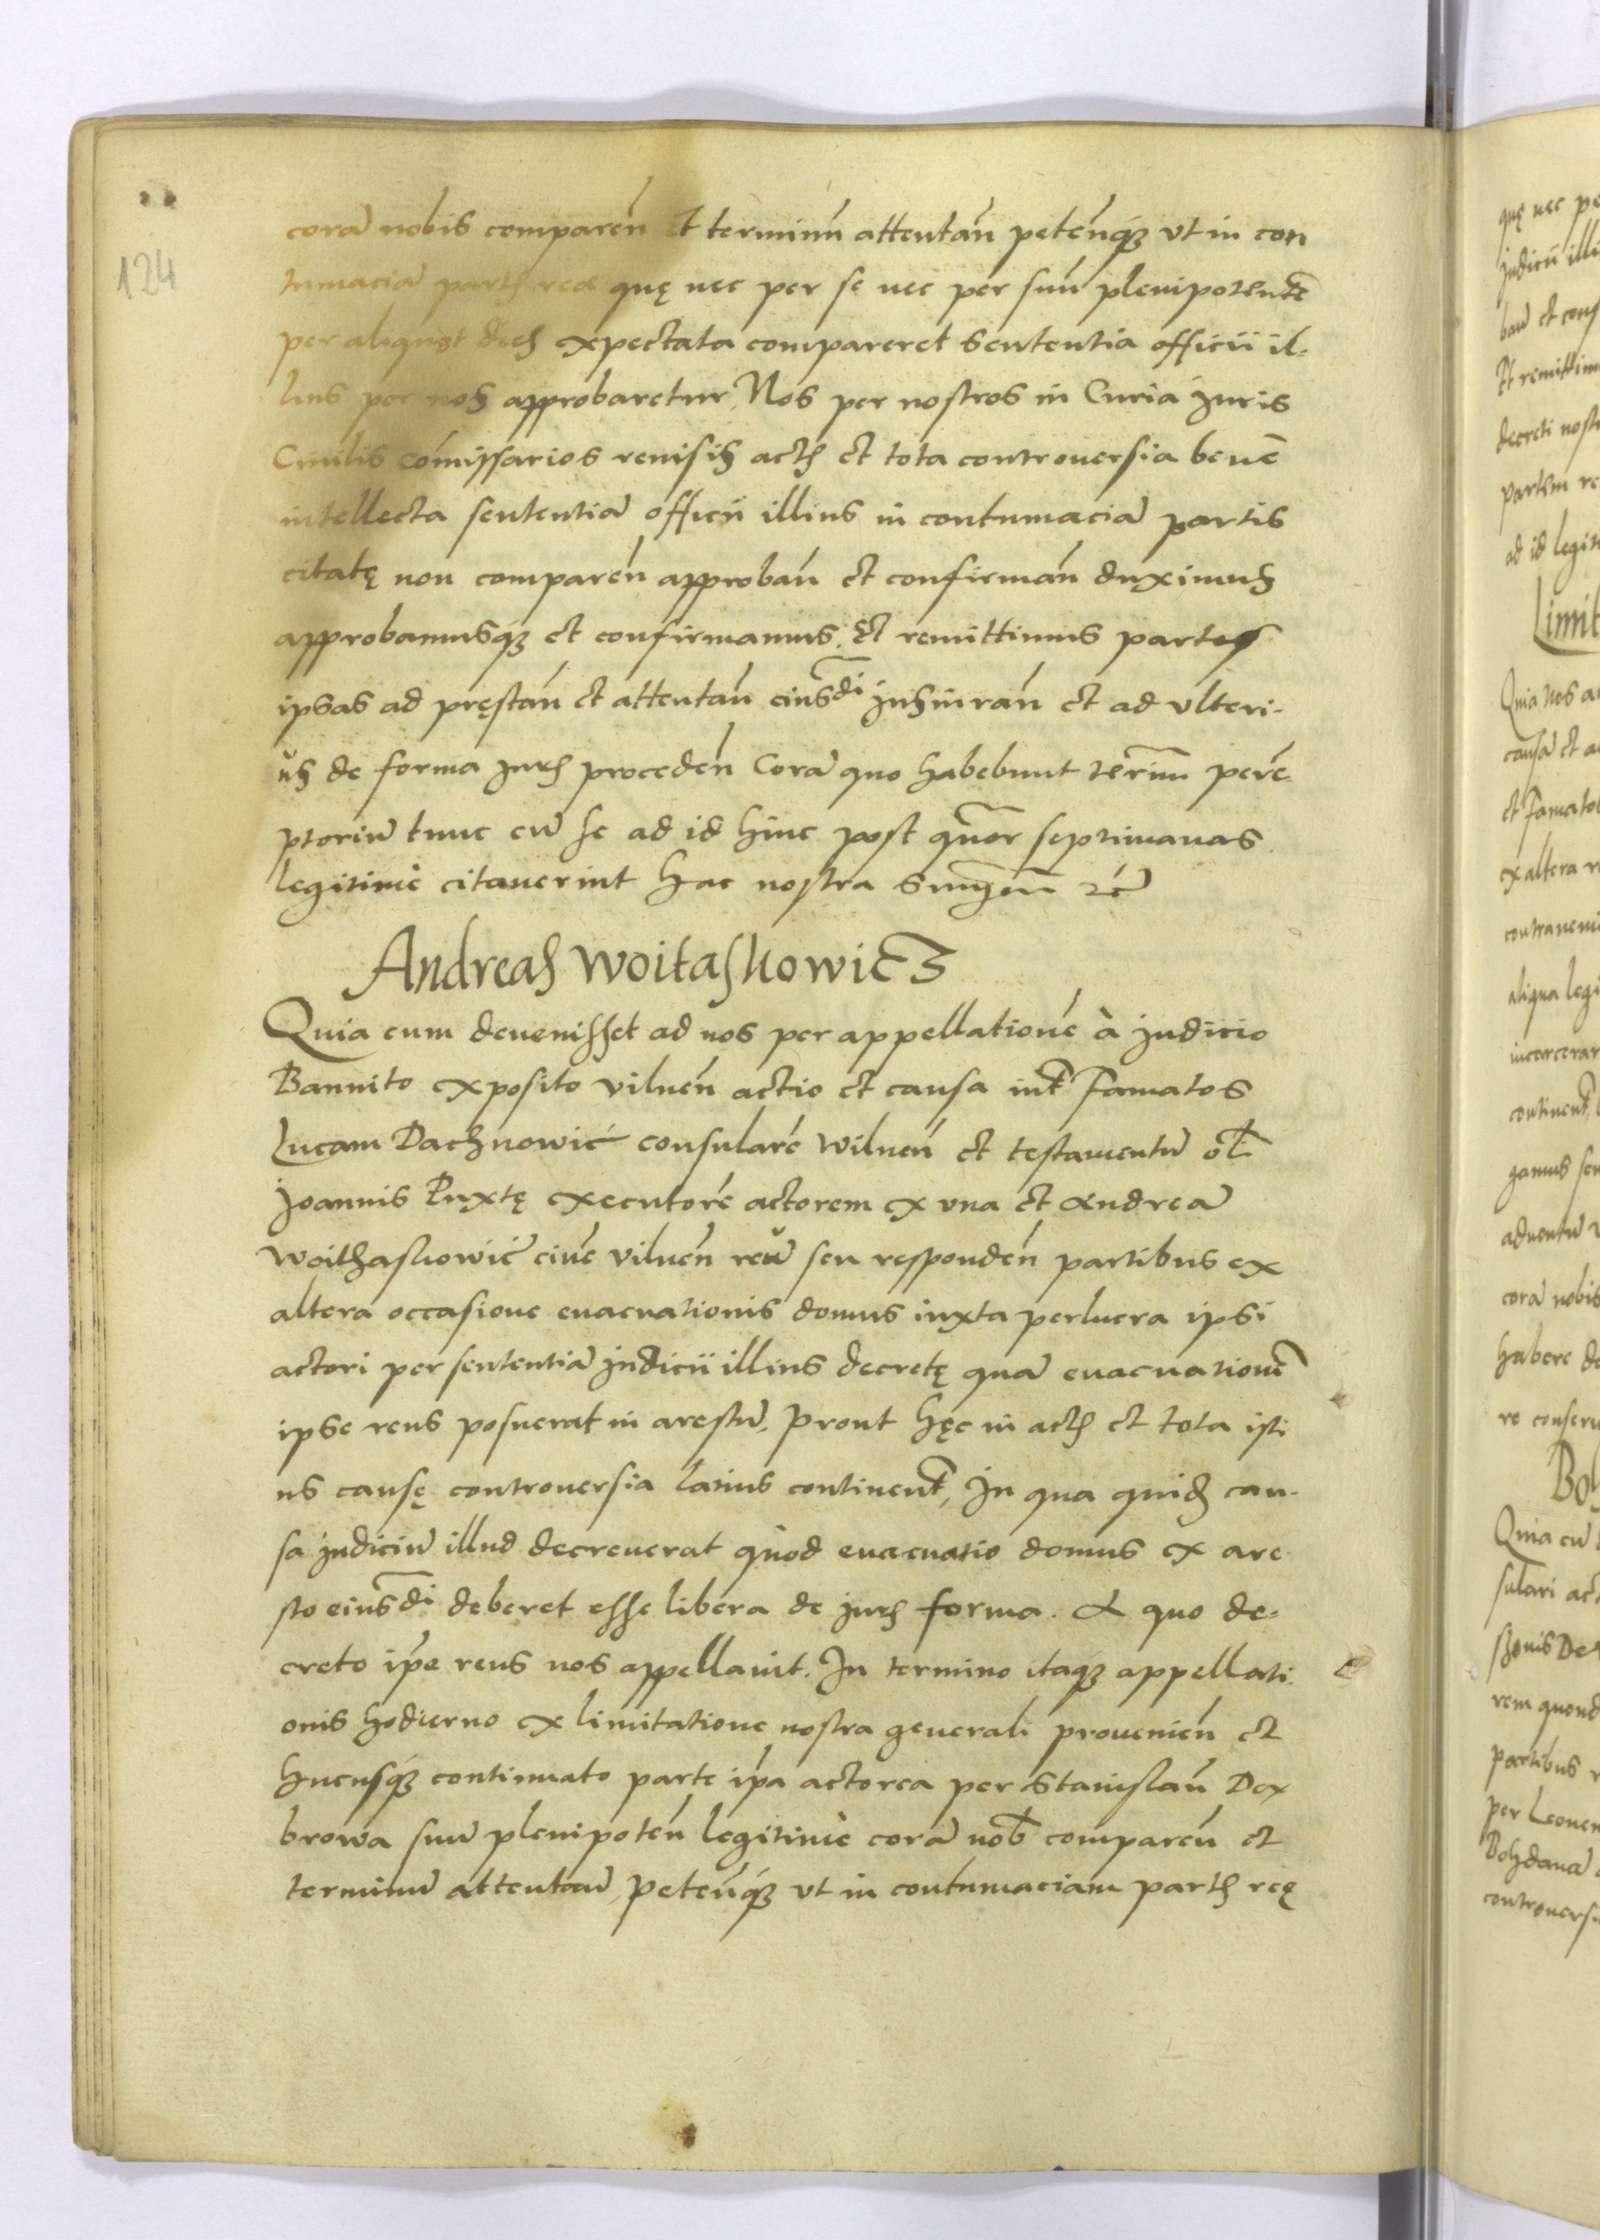 124
corā nobis comparēn Et terminū attentān petēnq; vt in con
tumaciā partis reae quę nec per se nec per suū plenipotentē
per aliquot dies expectata compareret sententia officii il-
lius per nos approbaretur, Nos per nostros in Curia juris
Ciuilis comissarios reuisis actis et tota controuersia bene
intellecta sententiā officii illius in contumaciā partis
citatę non comparēn approbān et confirmān duximus
approbamusq; et confirmamus. Et remittimus partes
ipsas ad pręstān et attentān eiusdi jusiurān et ad vlteri-
us de forma juris procedēn Corā quo habebunt termīn pere-
ptoriū tunc cū se ad id hinc post quor septimanas
legitime citauerint hac nostra snia m̄ etc
Andreas Woitaskowicz
Quia cum deuenisset ad nos per appellationē à judicio
Bannito exposito vilnēn actio et causa int Famatos
Lucam Dachnowić consularē wilnēn et testamentū ol
Joannis Puxtę executorē actorem ex vna et Andreā
Woithaskowić ciuē vilnēn reū seu respondēn partibus ex
altera occasione euacuationis domus iuxta perlucra ipsi
actori per sententiā judicii illius decretę quā euacuationē
ipse reus posuerat in arestū, prout hęc in actis et tota isti
us causę controuersia latius continent, In qua quid cau-
sa judiciū illud decreuerat quod euacuatio domus ex are
sto eiusdi deberet esse libera de juris forma. A quo de-
creto ipe reus nos appellauit. In termino itaq; appellati
onis hodierno ex limitatione nostra generali prouenien et
hucusq; continuato parte ipa actorea per Stanislaū Dox
browa suū plenipotēn legitime corā nob comparēn et
terminū attentān, petēnq; vt in contumaciam partis reę
quę nec pe
judicii illi
ban et conf
Et remittim
decreti nostr
partem re
ad id legit
Limit
Quia nos a
causā et a
et famato
ex altera r
contraueni
aliqua legi
incarcerar
continent
gamus sen
aduentū
corā nobis
habere de
re conseru
Bo
Quia cū
sulari act
rem quond
partibus
per Leonem
Bohdanā
controuersi